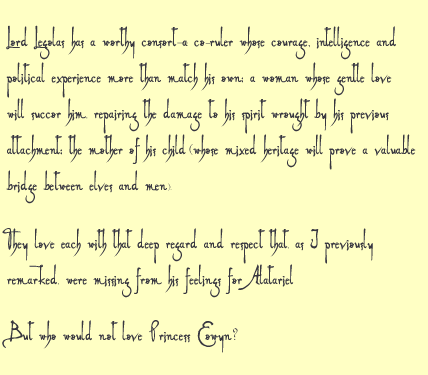 Lord Legolas has a worthy consort-a co-ruler whose courage, intelligence and
political experience more than match his own; a woman whose gentle love
will succor him, repairing the damage to his spirit wrought by his previous
attachment; the mother of his child (whose mixed heritage will prove a valuable
bridge between elves and men).
They love each with that deep regard and respect that, as I previously
remarked, were missing from his feelings for Alatariel.
But who would not love Princess Eowyn?